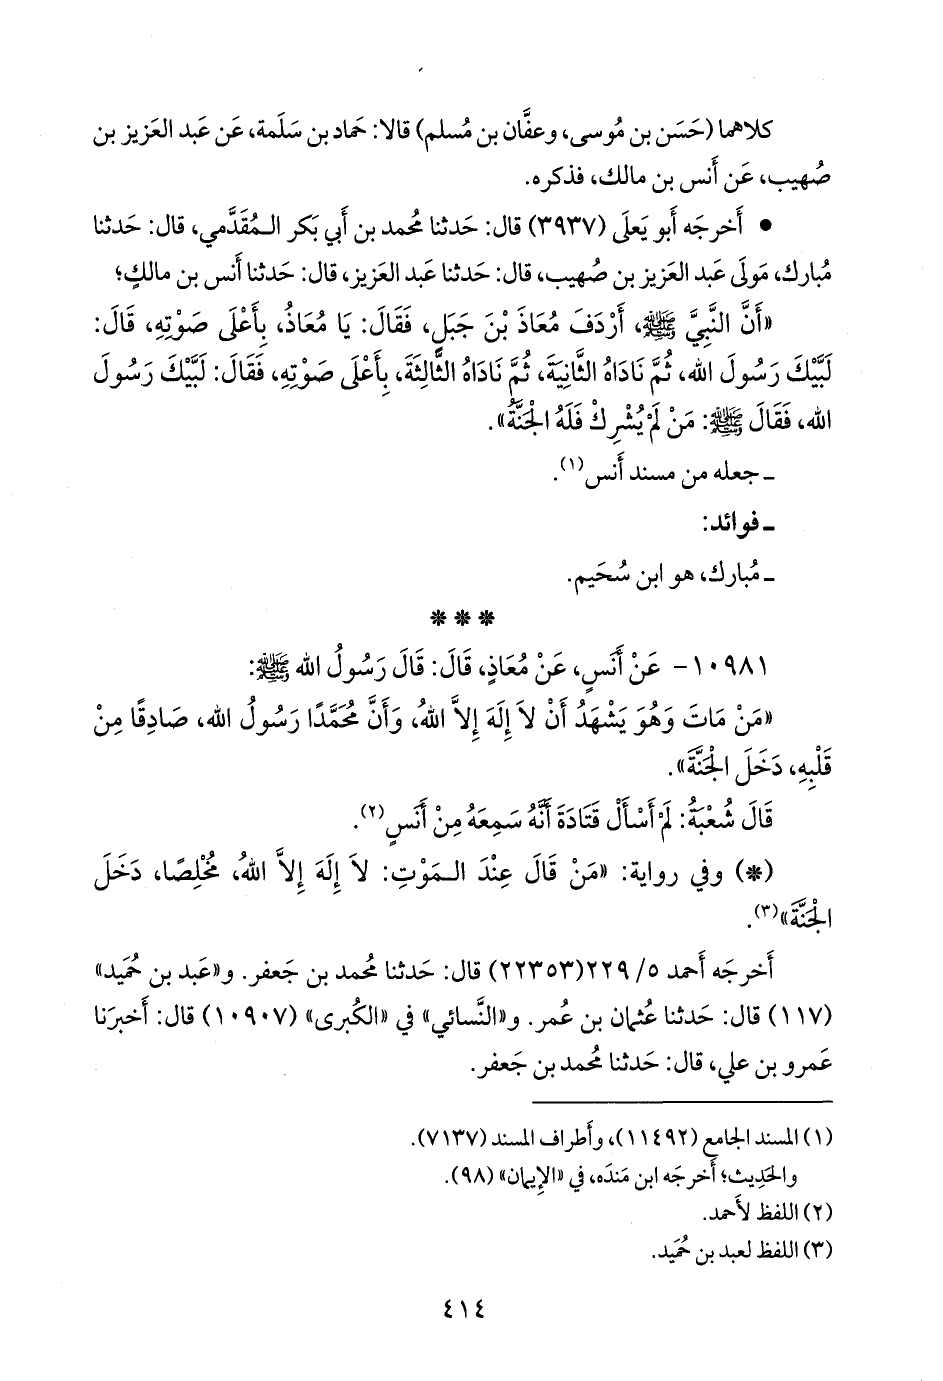 كلاهما (حَسَن بن مُوسى، وعفَّان بن مُسلم) قالا: حماد بن سَلَمة، عَن عَبد العَزيز بن
صُهيب، عَن أَنس بن مالك، فذكره.
• أَخرجَه أَبو يَعلَى (٣٩٣٧) قال: حَدثنا مُحمد بن أَبي بَكر الـمُقَدَّمي، قال: حَدثنا
مُبارك، مَولَى عَبد العَزيز بن صُهيب، قال: حَدثنا عَبد العَزيز، قال: حَدثنا أَنس بن مالكٍ؛
«أَنَّ النَّبِيَّ ﷺ، أَرْدَفَ مُعَاذَ بْنَ جَبَلٍ، فَقَالَ: يَا مُعَاذُ، بِأَعْلَى صَوْتِهِ، قَالَ:
لَبَّيْكَ رَسُولَ الله، ثُمَّ نَادَاهُ الثَّانِيَةَ، ثُمَّ نَادَاهُ الثَّالِثَةَ، بِأَعْلَى صَوْتِهِ، فَقَالَ: لَبَّيْكَ رَسُولَ
الله، فَقَالَ ﷺ: مَنْ لَمْ يُشْرِكْ فَلَهُ الجَنَّةُ».
ـ جعله من مسند أَنس(١).
ـ فوائد:
ـ مُبارك، هو ابن سُحَيم.
* * *
١٠٩٨١- عَنْ أَنَسٍ، عَنْ مُعَاذٍ، قَالَ: قَالَ رَسُولُ الله ﷺ:
«مَنْ مَاتَ وَهُوَ يَشْهَدُ أَنْ لاَ إِلَهَ إِلاَّ اللهُ، وَأَنَّ مُحَمَّدًا رَسُولُ الله، صَادِقًا مِنْ
قَلْبِهِ، دَخَلَ الجَنَّةَ».
قَالَ شُعْبَةُ: لَمْ أَسْأَلْ قَتَادَةَ أَنَّهُ سَمِعَهُ مِنْ أَنَسٍ(٢).
(*) وفي رواية: «مَنْ قَالَ عِنْدَ الـمَوْتِ: لاَ إِلَهَ إِلاَّ اللهُ، مُخْلِصًا، دَخَلَ
الجَنَّةَ»(٣).
أَخرجَه أَحمد ٥/ ٢٢٩(٢٢٣٥٣) قال: حَدثنا مُحمد بن جَعفر. و«عَبد بن حُميد»
(١١٧) قال: حَدثنا عُثمان بن عُمر. و«النَّسائي» في «الكُبرى» (١٠٩٠٧) قال: أَخبرَنا
عَمرو بن علي، قال: حَدثنا مُحمد بن جَعفر.
(١) المسند الجامع (١١٤٩٢)، وأطراف المسند (٧١٣٧).
والحَدِيث؛ أَخرجَه ابن مَندَه، في «الإِيمان» (٩٨).
(٢) اللفظ لأَحمد.
(٣) اللفظ لعبد بن حُمَيد.
٤١٤